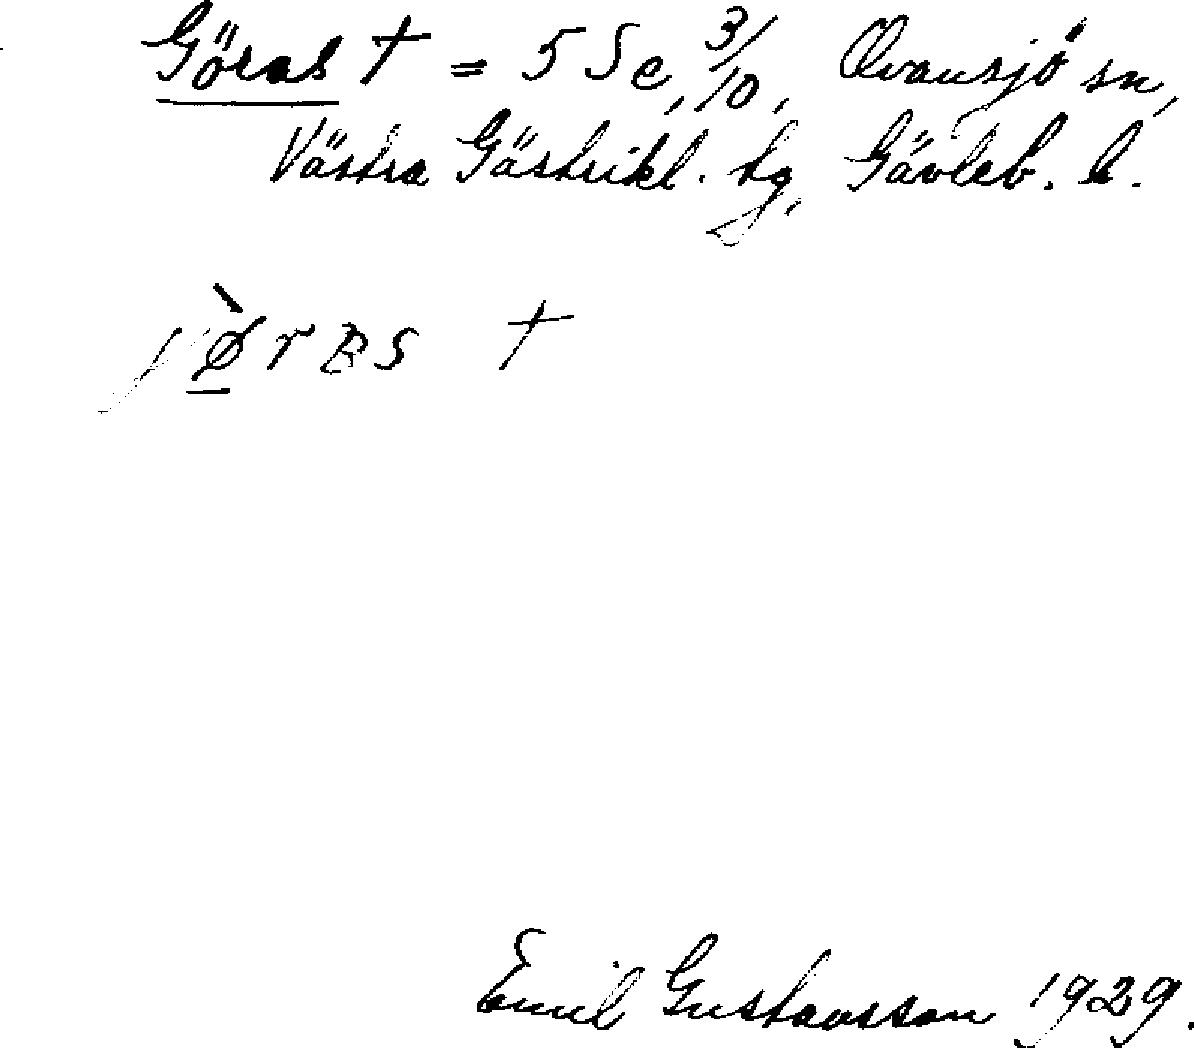 Göras † = 5 Se, 3/10, Ovansjö sn,
Västra Gästrikl. tg, Gävleb. l.
jø̀rɐs †
Emil Gustavsson 1929.